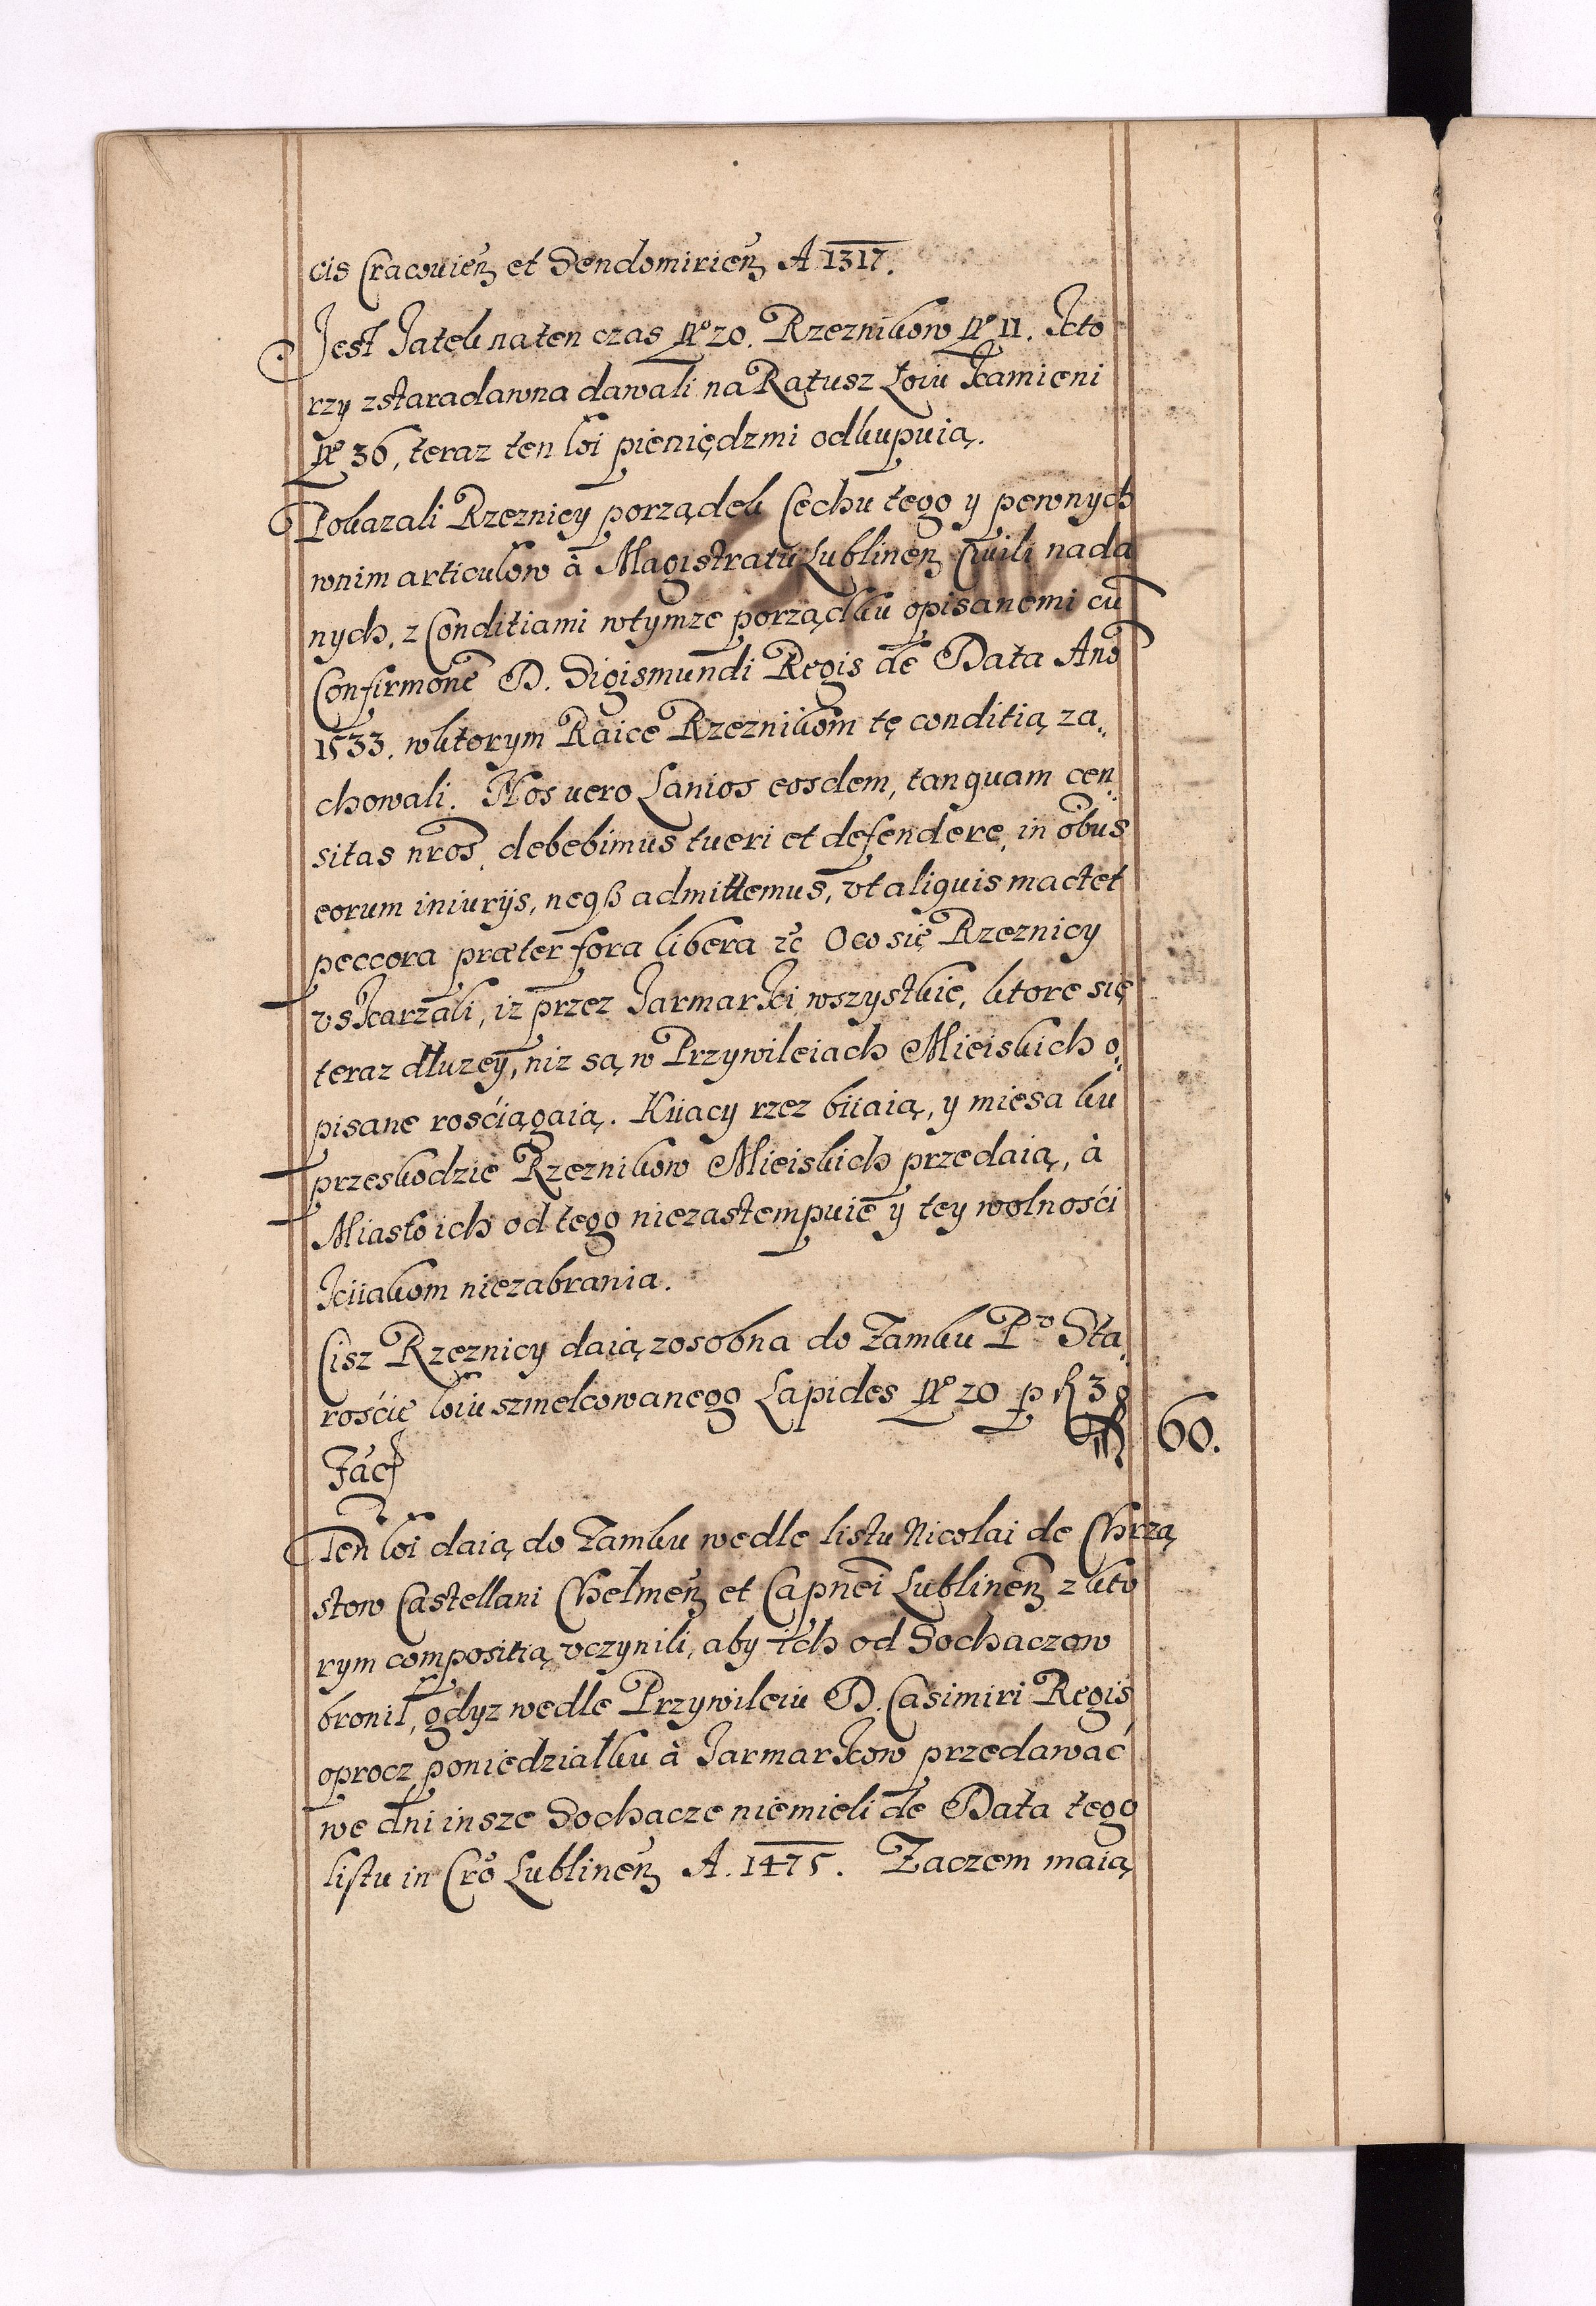 cis Cracouień et Sendomirień A. 1317.
Jest Jatek na ten czas No 20. Rzeznikow No 11. Kto
rzy zstaradawna dawali na Ratusz Łoiu Kamieni
No 36, teraz ten łoi pieniędzmi odkupuią.
Pokazali Rzeznicy porządek Cechu tego y pewnych
wnim articułow à Magistratu Lublineń Ciuili nada
nych, z Conditiami wtymze porządku opisanemi cū
Confirmone D. Sigismundi Regis de Data Ano
1533. wktorym Raice Rzeznikom tę conditią za„
chowali. Nos uero Lanios eosdem, tanquam cen„
sitas nros, debebimus tueri et defendere, in obus
eorum iniurijs, neqꝫ admittemus, vt aliquis mactet
peccora præter fora libera ec̃ Oco się Rzeznicy
vskarzali, iz przez Jarmarki wszystkie, ktore się
teraz dłuzey, niz są w Przywileiach Mieiskich o„
pisane rościągaią. Kiiacy rzez biiaią, y miesa ku
przeskodzie Rzeznikow Mieiskich przedaią, à
Miasto ich od tego niezastempuie y tey wolności
Kiiakom niezabrania.
Cisz Rzeznicy daią zosobna do Zamku P. Sta„
rościę łoiu szmelcowanego Lapides No 20 p 3
60.
Fac
Ten łoi daią do Zamku wedle listu Nicolai de Chrzą
stow Castellani Chełmeń et Capnei Lublineń z kto
rym compositią vczynili, aby ich od Sochaczow
bronił, gdyz wedle Przywileiu D. Casimiri Regis
oprocz poniedziałku à Jarmarkow przedawać
we dni insze Sochacze niemieli de Data tego
listu in Cro Lublineń A. 1475. Zaczem maią